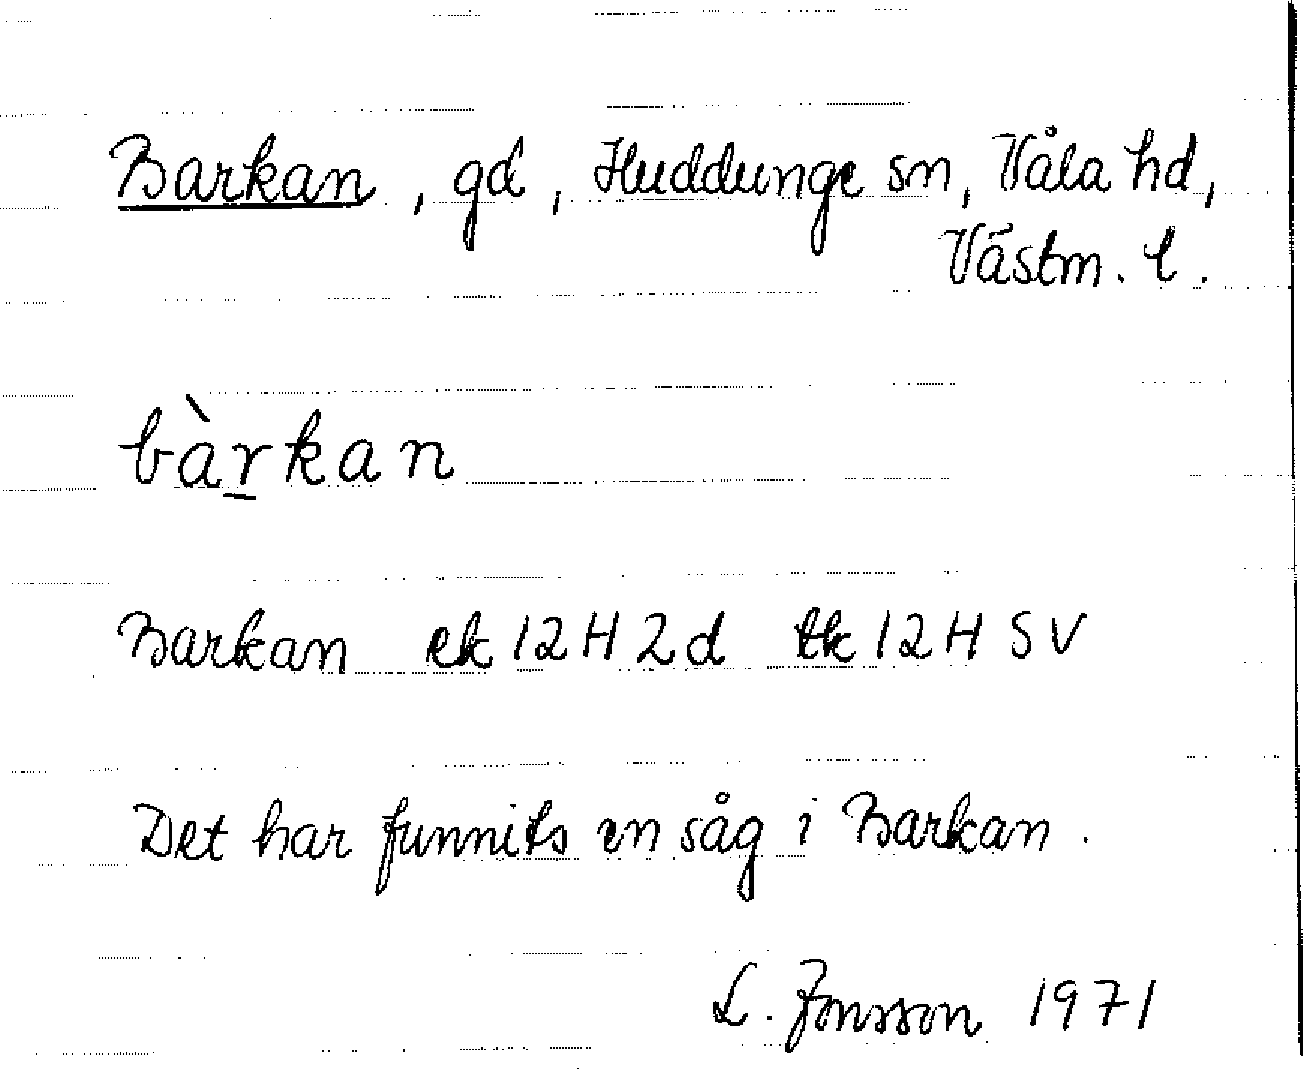 Barkan, gd, Huddunge sn, Våla hd,
Västm. l.
bàr̲kan
Barkan ek 12H2d tk 12H SV
Det har funnits en såg i Barkan.
L. Jonsson 1971